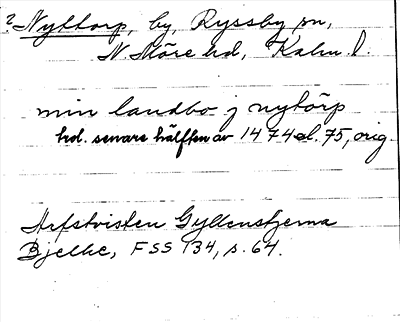 ? Nyttorp, by, Ryssby sn,
N Möre hd, Kalm. l.
min landbo j nytörp
hd. senare hälften av 1474 el. 75, orig.
Arfstvisten Gyllenstjerna
Bjelke, FSS 134, s. 64.